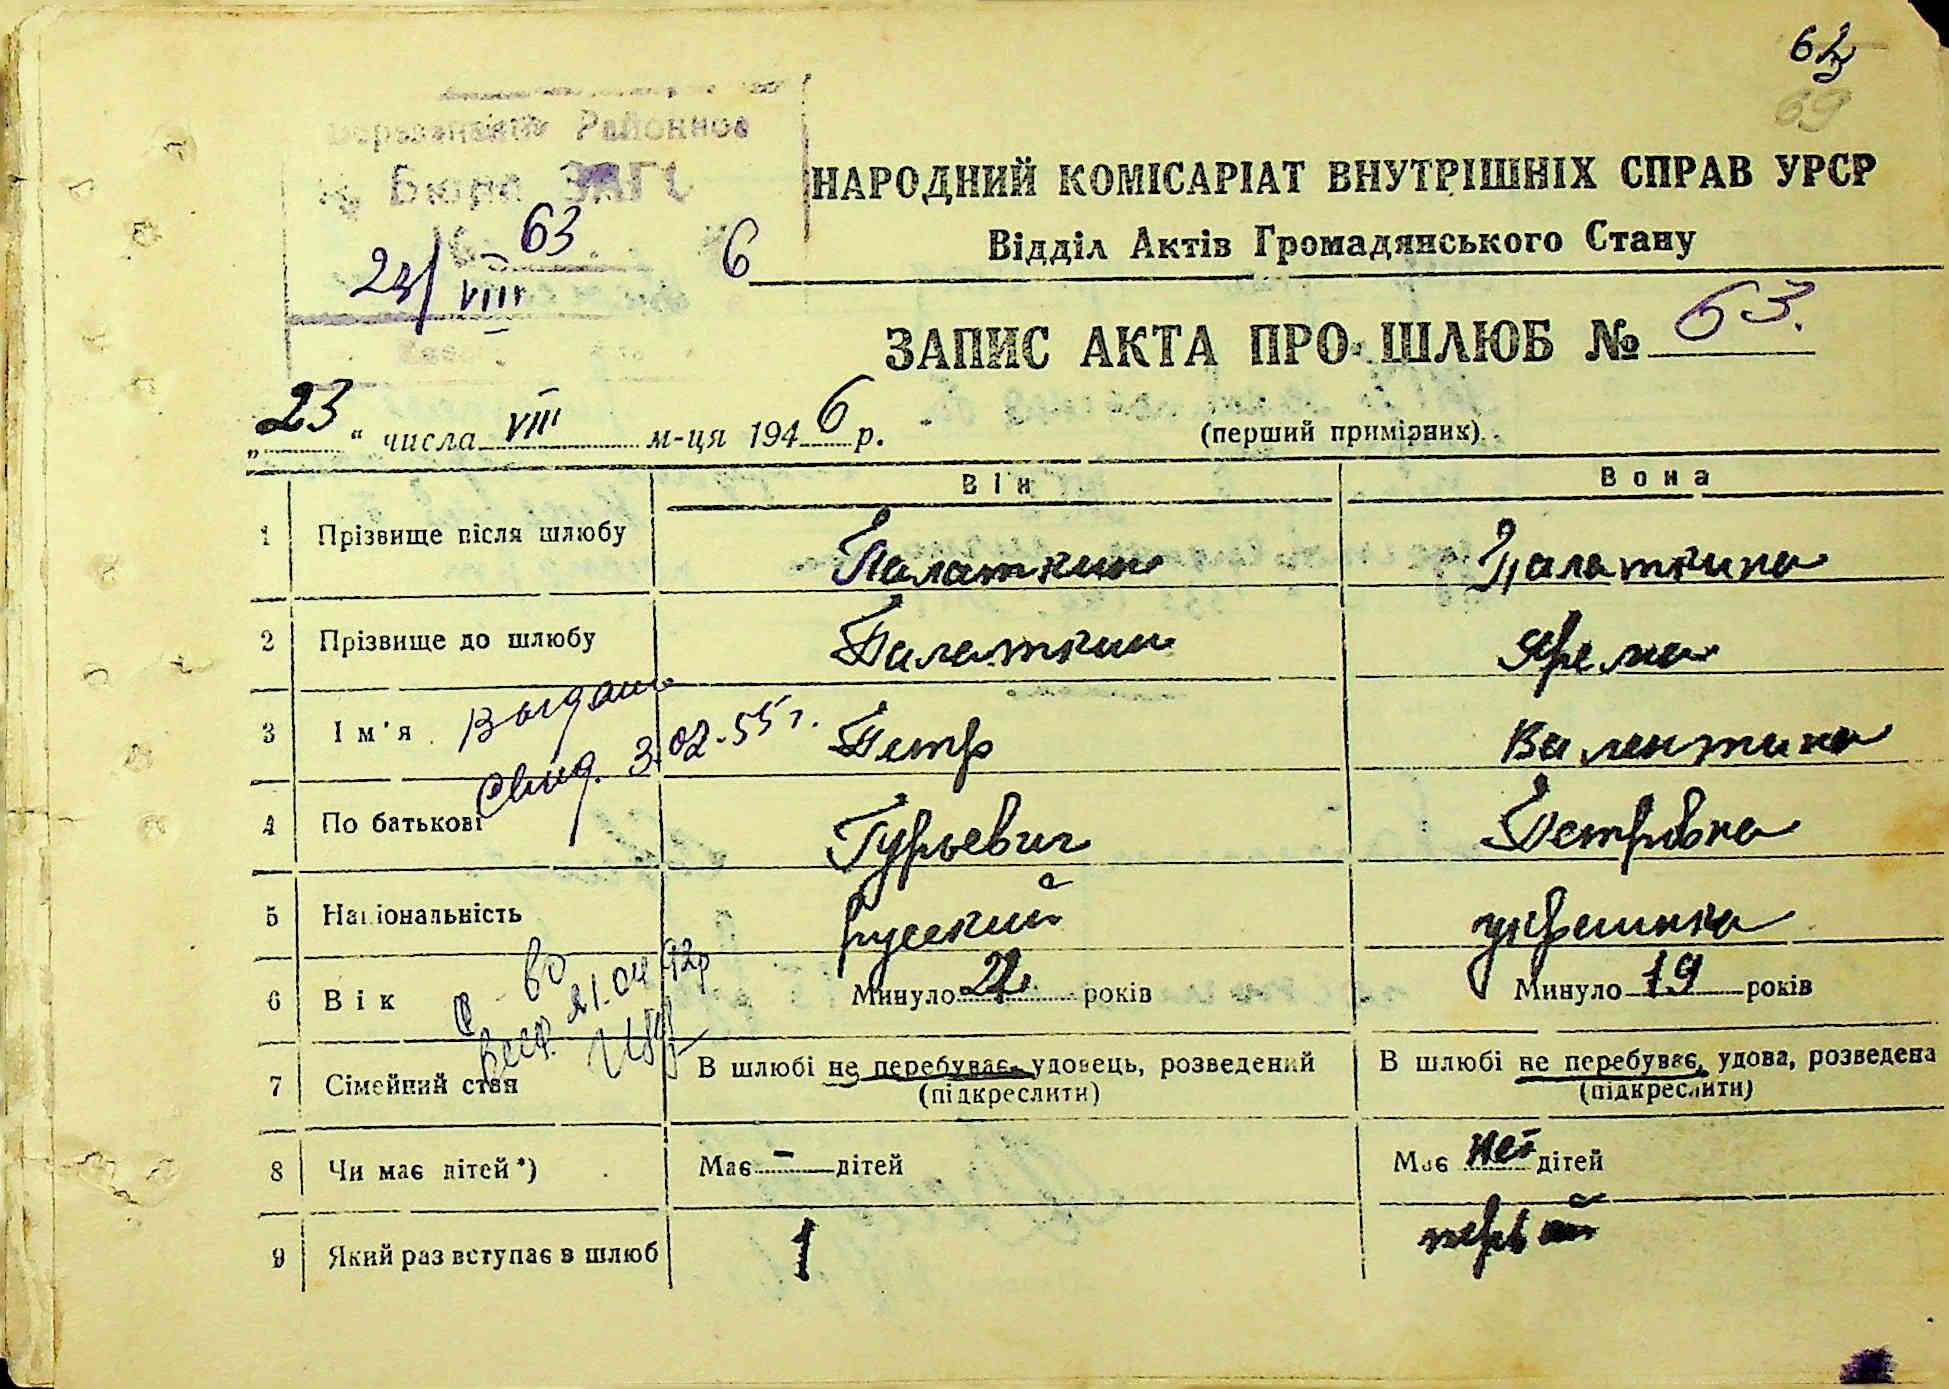 63
69
Районное
Бюро ЗАГС
63
23/VIII 6
НАРОДНИЙ КОМІСАРІАТ ВНУТРІШНІХ СПРАВ УРСР
Відділ Актів Громадянського Стану
ЗАПИС АКТА ПРО ШЛЮБ № 63.
„23“ числа VIII м-ця 1946 р.
(перший примірник)
Він Вона
1 Прізвище після шлюбу Палаткин Палаткина
2 Прізвище до шлюбу Палаткин Ярема
3 Ім'я Петр Валентина
Выдано
свид. 3/02-55 г.
4 По батькові Гурьевич Петровна
5 Національність русский украинка
6 Вік Минуло років Минуло 19 років
21.04.92р
7 Сімейний стан В шлюбі не перебуває, удовець, розведений В шлюбі не перебуває, удова, розведена
(підкреслити) (підкреслити)
8 Чи має дітей*) Має - дітей Має нет дітей
9 Який раз вступає в шлюб 1 первый